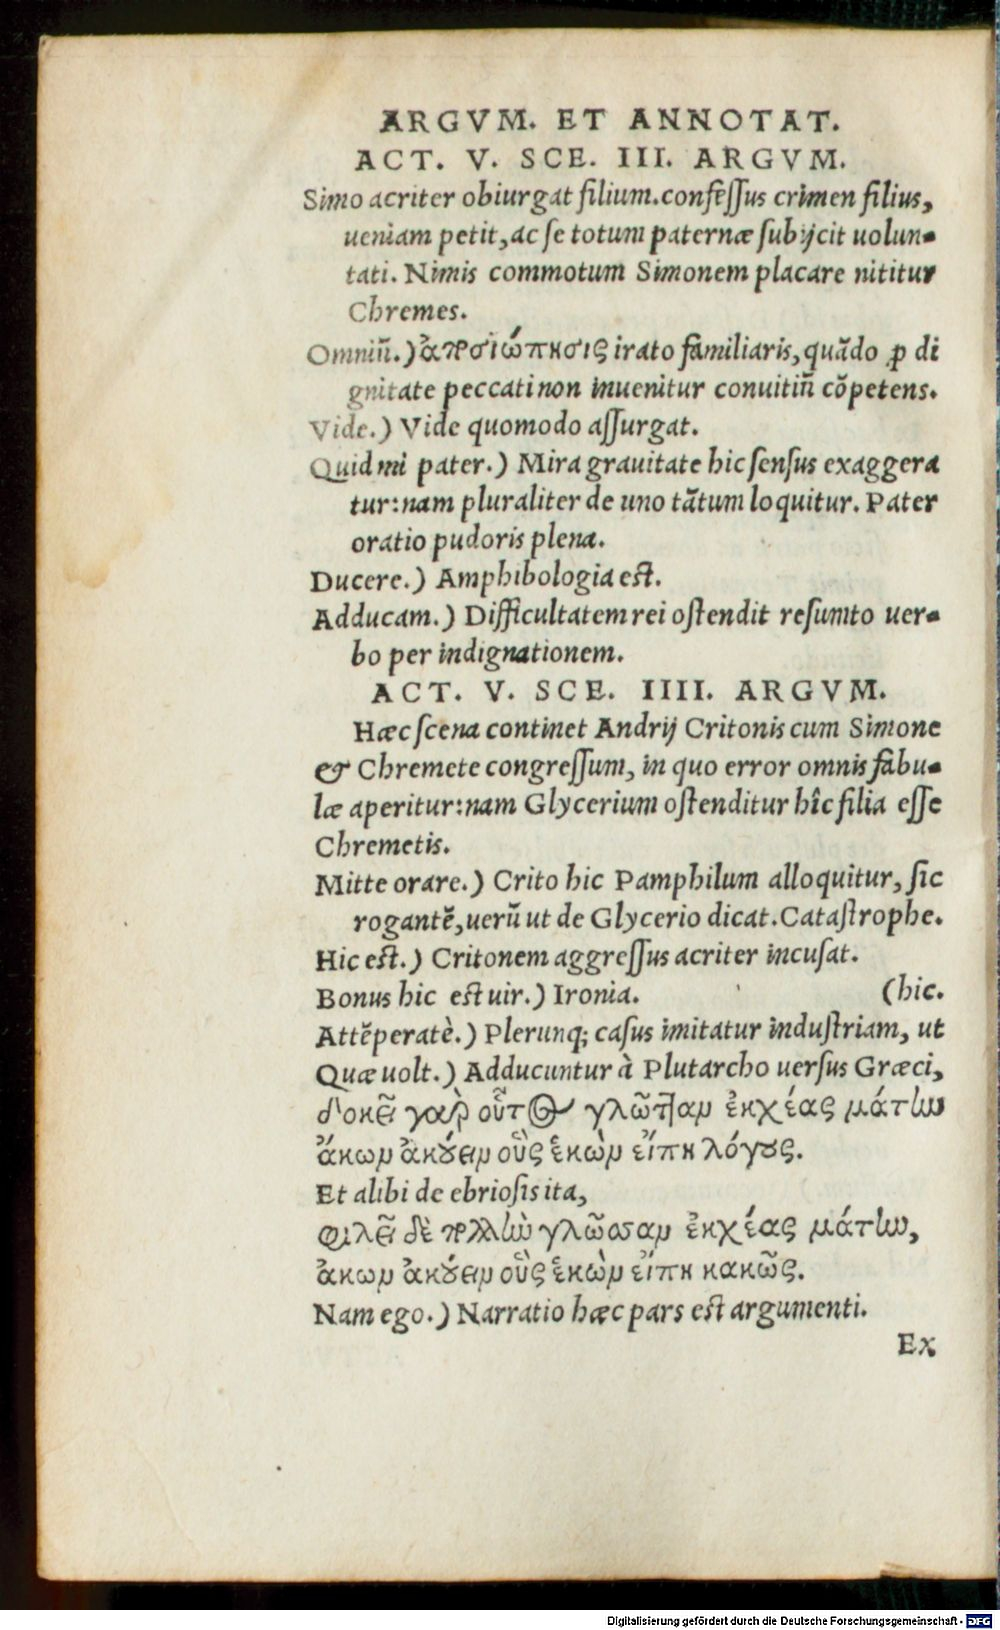 ARGVM. ET ANNOTAT.
ACT. V. SCE. III. ARGVM.
Simo acriter obiurgat filium.confeſſus crimen filius,
ueniam petit,ac ſe totum paternæ ſubijcit uolun-
tati. Nimis commotum Simonem placare nititur
Chremes.
Omniũ.) ἀποσιώπησις irato familiaris,quãdo ꝓ di
gnitate peccati non inuenitur conuitiũ cõpetens.
Vide.) Vide quomodo aſſurgat.
Quid mi pater.) Mira grauitate hic ſenſus exaggera
tur:nam pluraliter de uno tãtum loquitur. Pater
oratio pudoris plena.
Ducere.) Amphibologia eſt.
Adducam.) Difficultatem rei oſtendit reſumto uer-
bo per indignationem.
ACT. V. SCE. IIII. ARGVM.
Hæc ſcena continet Andrij Critonis cum Simone
& Chremete congreſſum, in quo error omnis fabu-
læ aperitur:nam Glycerium oſtenditur hîc filia eſſe
Chremetis.
Mitte orare.) Crito hic Pamphilum alloquitur, ſic
rogantẽ,uerũ ut de Glycerio dicat.Cataſtrophe.
Hic eſt.) Critonem aggreſſus acriter incuſat.
Bonus hic eſt uir.) Ironia. (hic.
Attẽperatè.) Plerunq; caſus imitatur induſtriam, ut
Quæ uolt.) Adducuntur à Plutarcho uerſus Græci,
δοκεῖ γαρ οὗτος γλῶτταν ἐκχέας μάτην
ἄκων ἀκούειν οὓς ἑκὼν εἴπη λόγους.
Et alibi de ebrioſis ita,
φιλεῖ δὲ πολλὴν γλῶσσαν ἐκχέας μάτην,
ἄκων ἀκούειν οὓς ἑκὼν εἴπη κακῶς.
Nam ego.) Narratio hæc pars eſt argumenti.
Ex
Digitalisierung gefördert durch die Deutsche Forschungsgemeinschaft - DFG